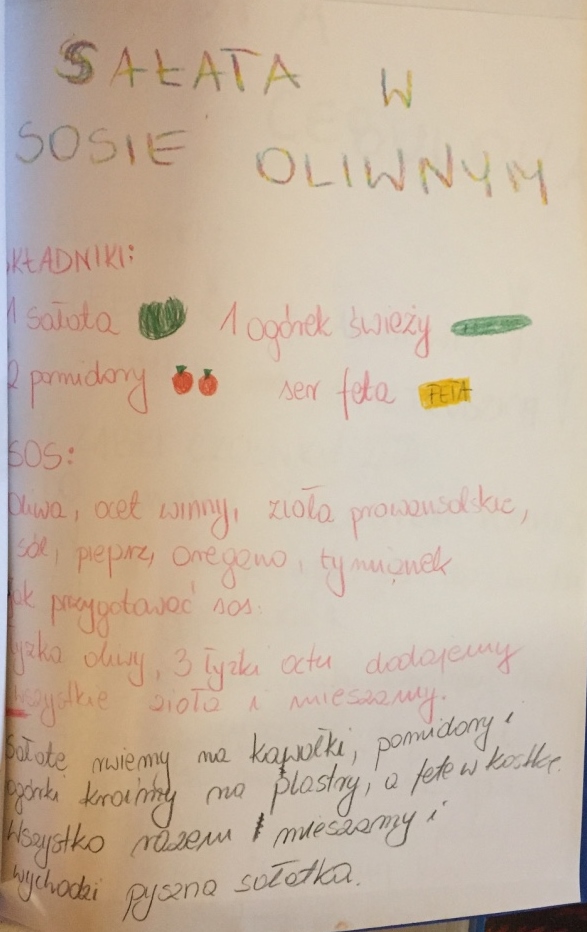 SAŁATA W
SOSIE OLIWNYM
SKŁADNIKI:
1 sałata 1 ogórek świeży
2 pomidory ser feta FETA
SOS:
oliwa, ocet winny, zioła prowansalskie,
sól, pieprz, oregano, tymianek
jak przygotować sos:
łyżka oliwy, 3 łyżki octu dodajemy
wszystkie zioła i mieszamy.
Sałatę rwiemy na kawałki, pomidory i
ogórki kroimy na plastry, a fetę w kostkę.
Wszystko razem mieszamy i
wychodzi pyszna sałatka.